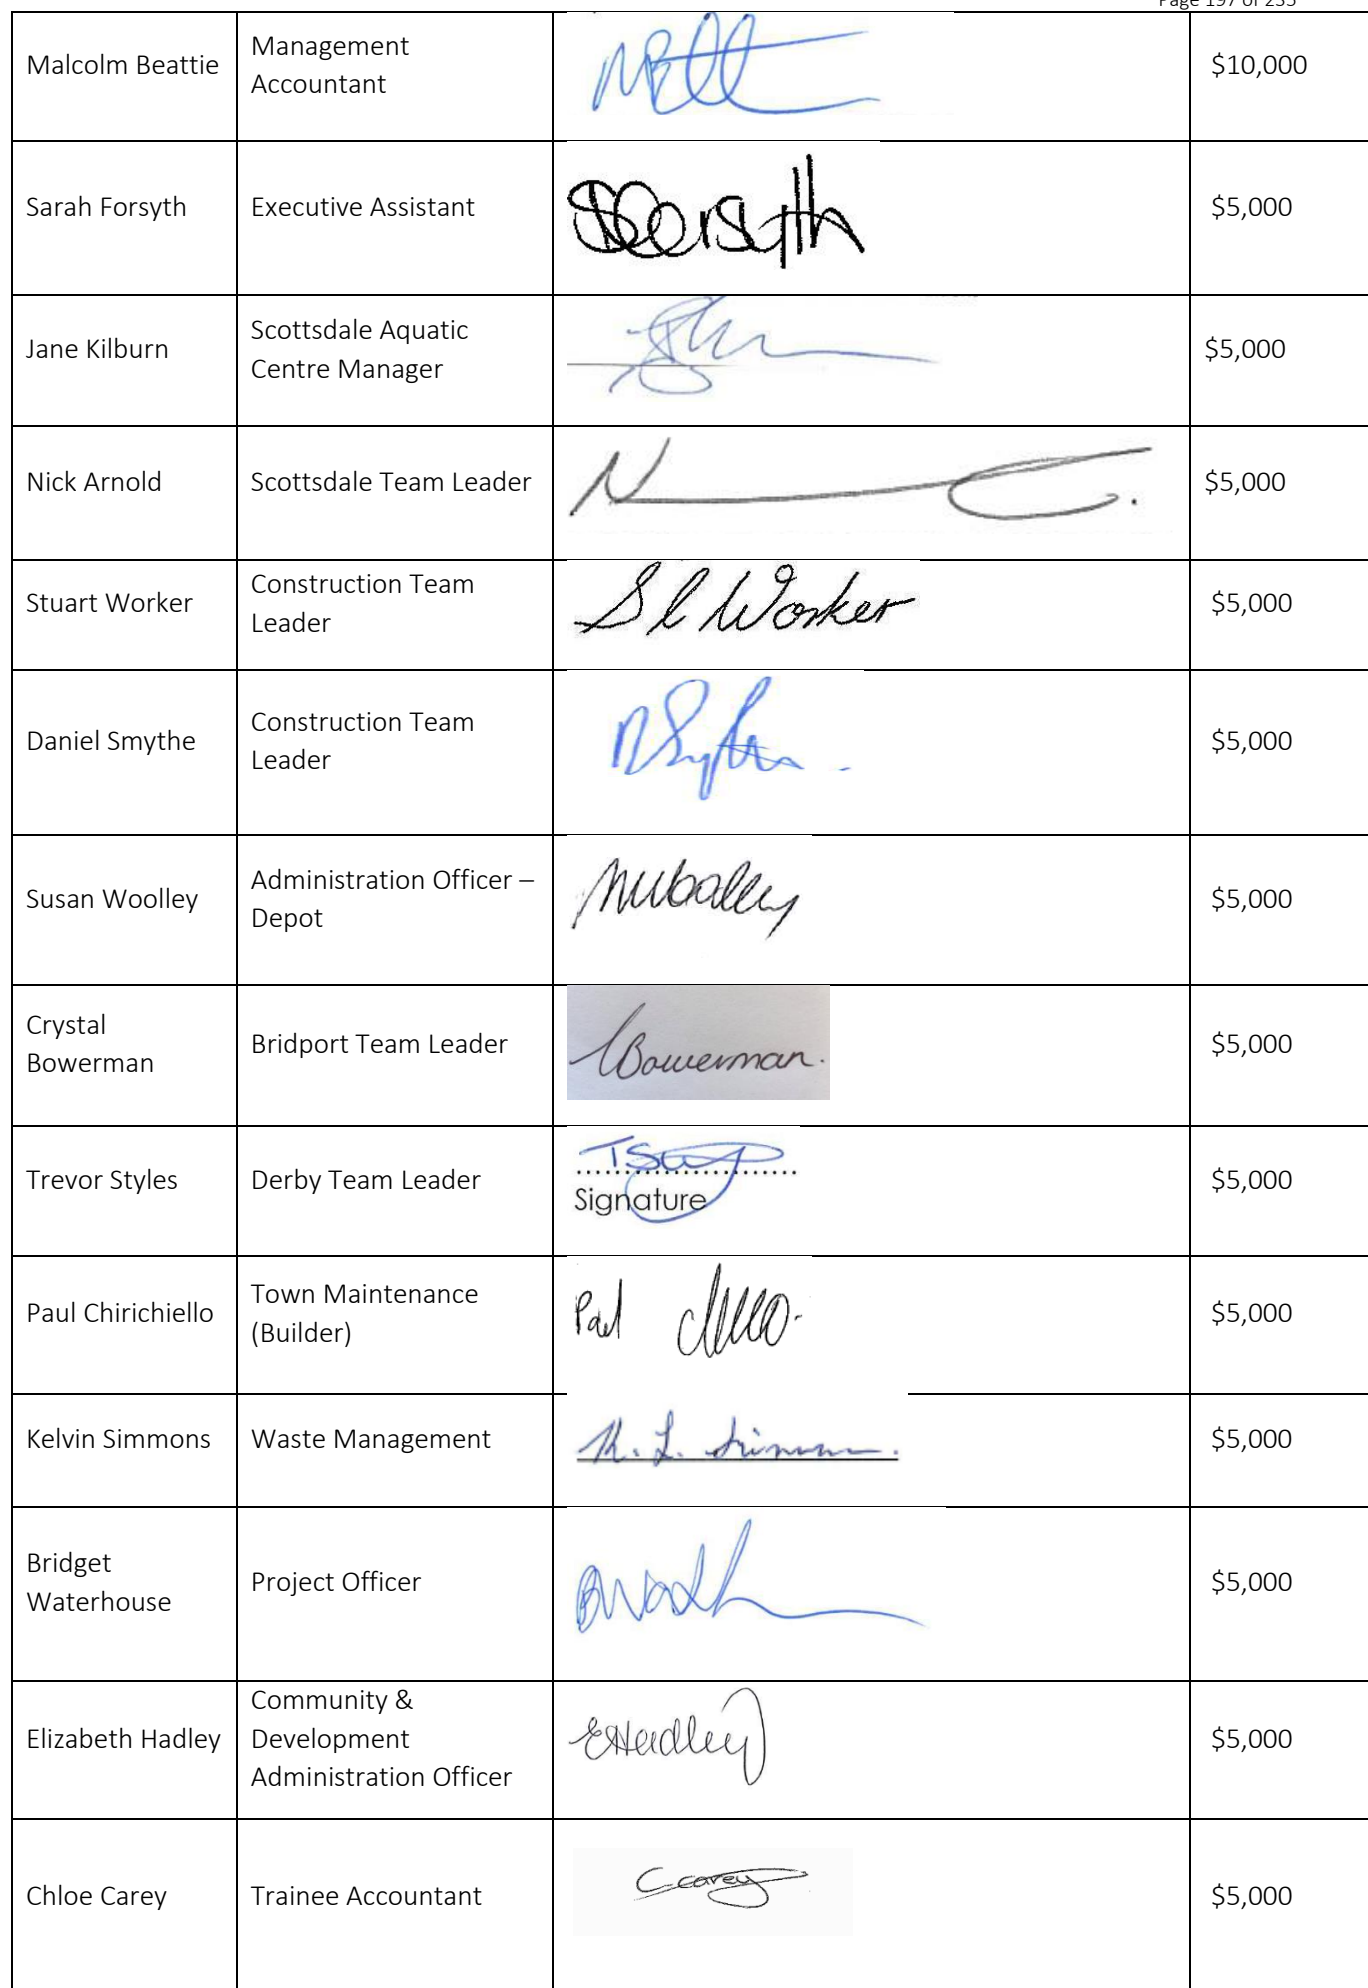 Page 197 of 235
Malcolm Beattie
Management
Accountant
$10,000
Sarah Forsyth
Executive Assistant
$5,000
Jane Kilburn
Scottsdale Aquatic
Centre Manager
$5,000
Nick Arnold
Scottsdale Team Leader
$5,000
Stuart Worker
Construction Team
Leader
S L Worker
$5,000
Daniel Smythe
Construction Team
Leader
$5,000
Susan Woolley
Administration Officer –
Depot
$5,000
Crystal
Bowerman
Bridport Team Leader
CBowerman.
$5,000
Trevor Styles
Derby Team Leader
Signature
$5,000
Paul Chirichiello
Town Maintenance
(Builder)
Paul
$5,000
Kelvin Simmons
Waste Management
$5,000
Bridget
Waterhouse
Project Officer
$5,000
Elizabeth Hadley
Community &
Development
Administration Officer
EHadley
$5,000
Chloe Carey
Trainee Accountant
C Carey
$5,000